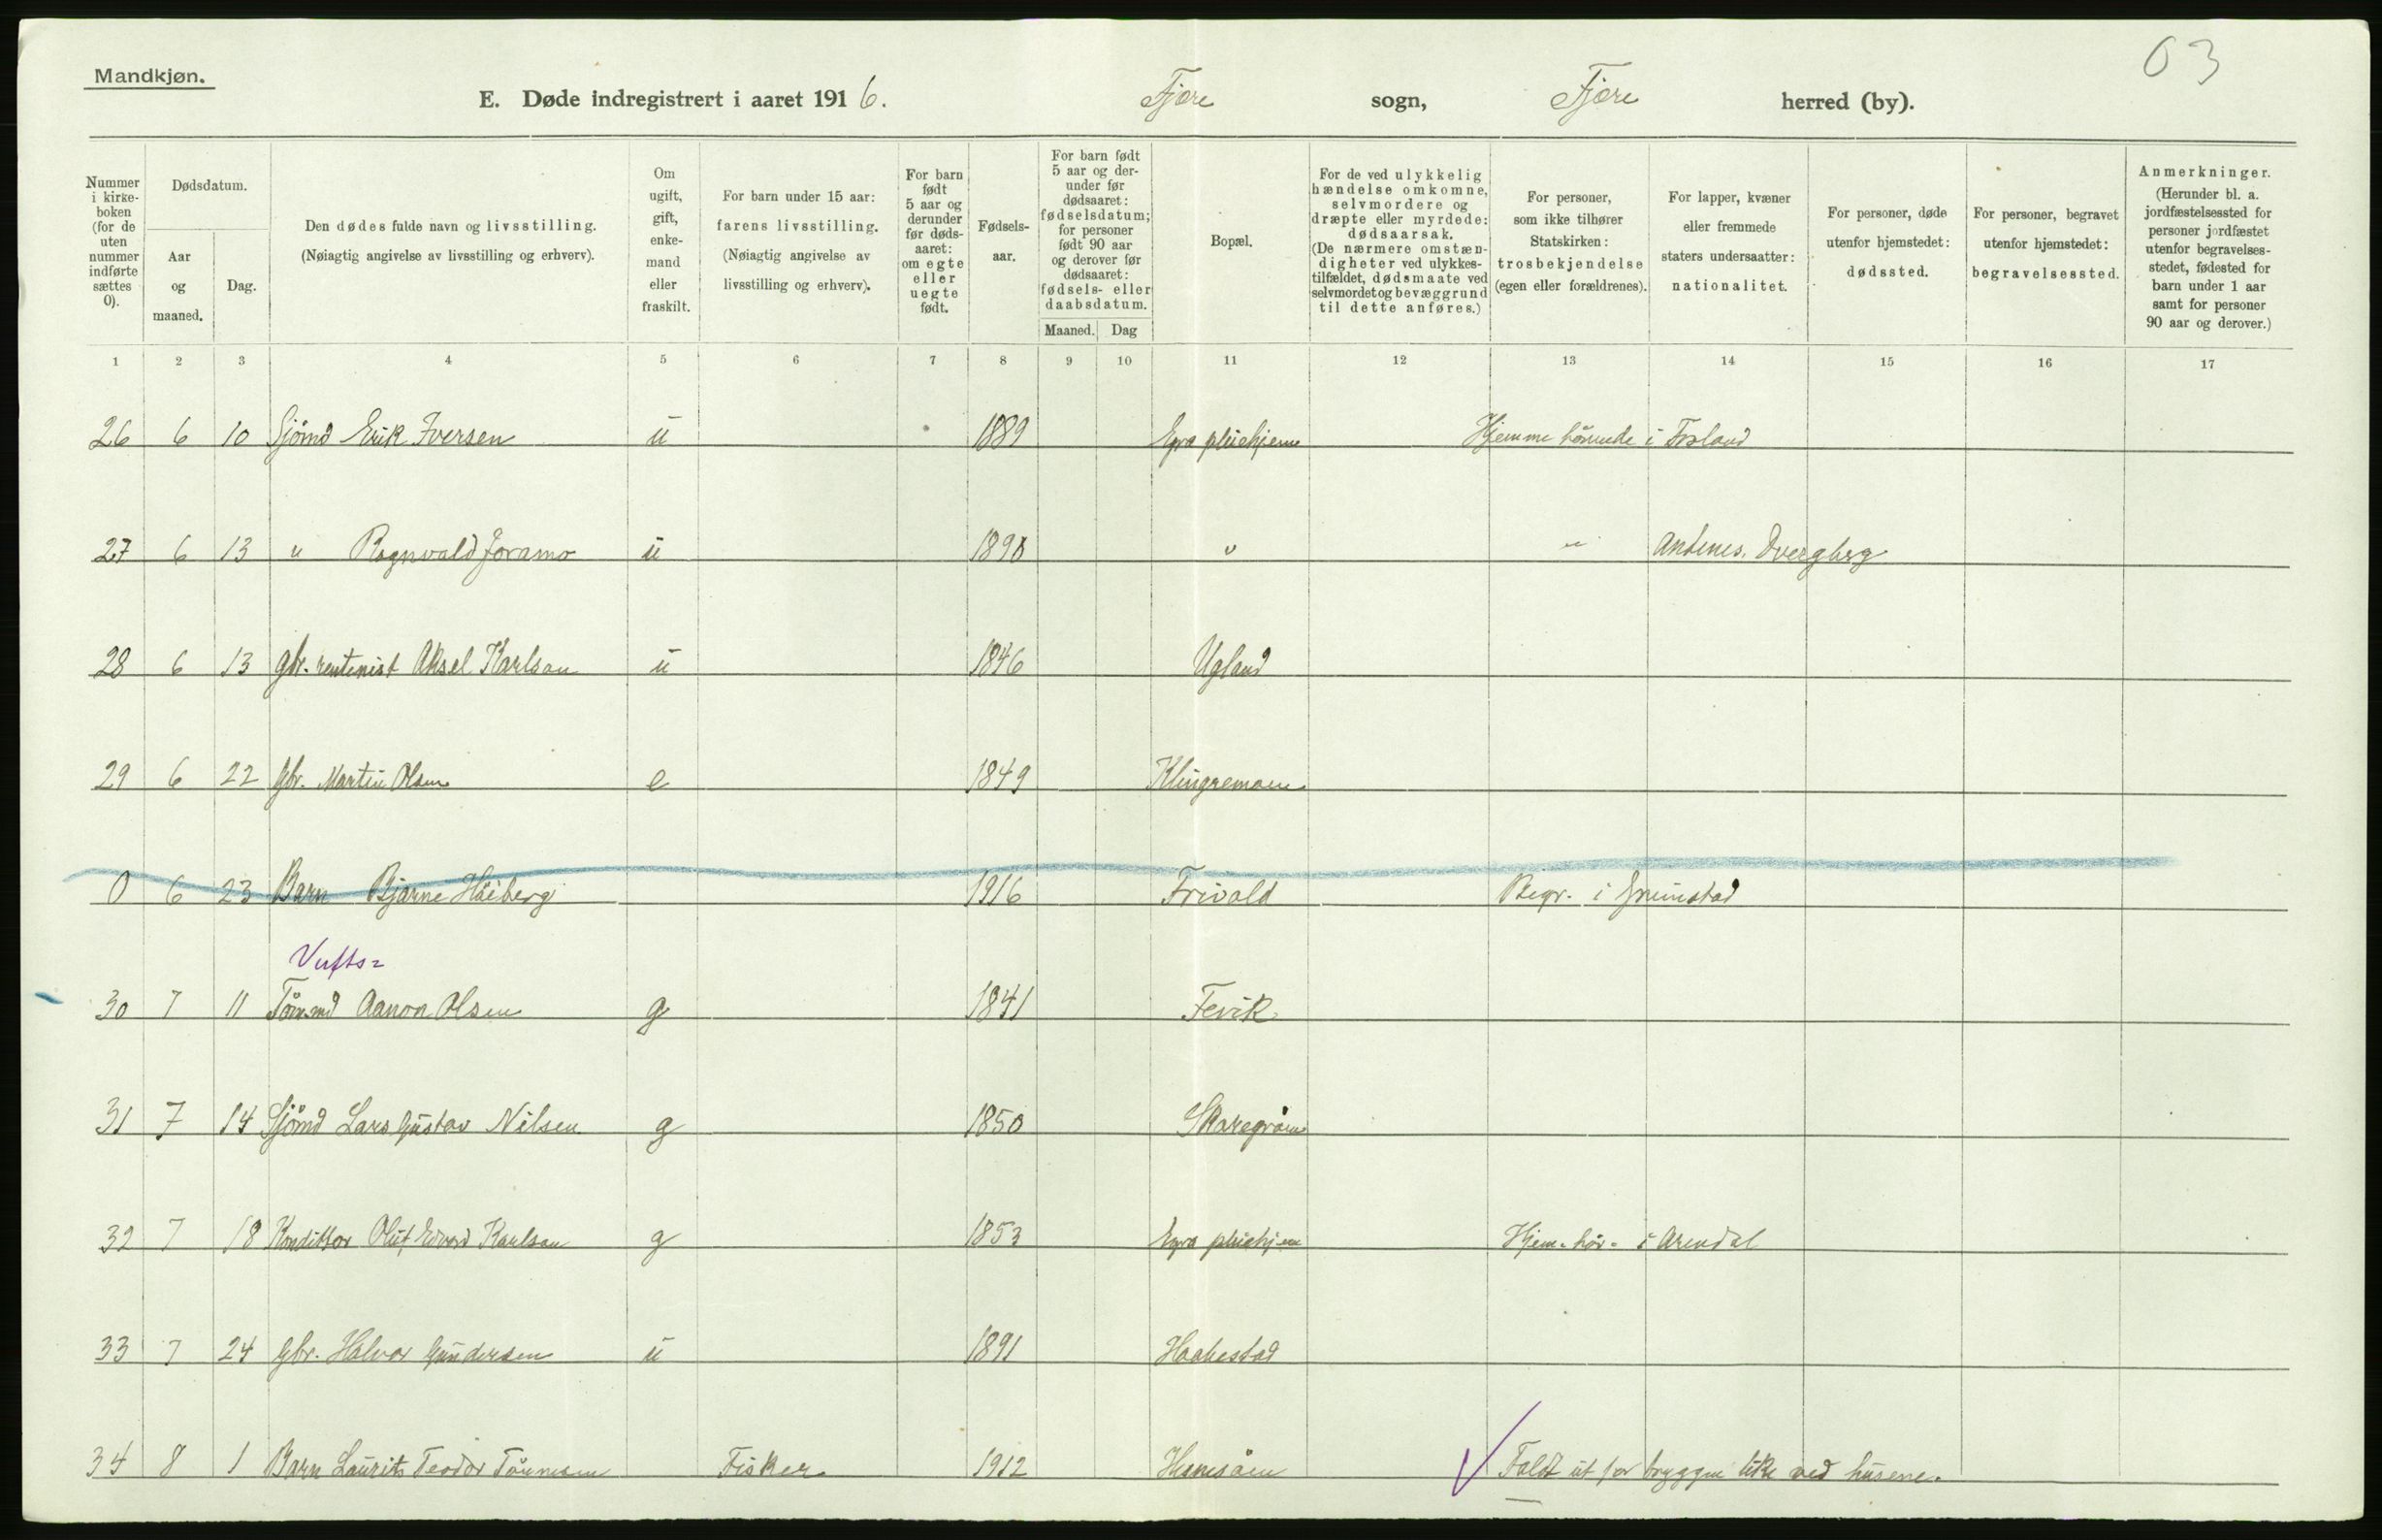 Mandkjøn.
63
E. Døde indregistrert i aaret 1916. Fjære sogn, Fjære herred (by).
Nummer i kirkeboken (for de uten nummer indførte sættes 0).
Dødsdatum.
Aar og maaned.
Dag.
Den dødes fulde navn og livsstilling. (Nøiagtig angivelse av livsstilling og erhverv).
Om ugift, gift, enkemand eller fraskilt.
For barn under 15 aar: farens livsstilling. (Nøiagtig angivelse av livsstilling og erhverv).
For barn født 5 aar og derunder før dødsaaret: om egte eller uegte født.
Fødselsaar.
For barn født 5 aar og derunder før dødsaaret: fødselsdatum; for personer født 90 aar og derover før dødsaaret: fødsels- eller daabsdatum.
Maaned. Dag
Bopæl.
For de ved ulykkelig hændelse omkomne, selvmordere og dræpte eller myrdede: dødsaarsak. (De nærmere omstændigheter ved ulykkestilfældet, dødsmaate ved selvmordet og bevæggrund til dette anføres.)
For personer, som ikke tilhører Statskirken: trosbekjendelse (egen eller forældrenes).
For lapper, kvæner eller fremmede staters undersaatter: nationalitet.
For personer, døde utenfor hjemstedet: dødssted.
For personer, begravet utenfor hjemstedet: begravelsessted.
Anmerkninger. (Herunder bl. a. jordfæstelsessted for personer jordfæstet utenfor begravelsesstedet, fødested for barn under 1 aar samt for personer 90 aar og derover.)
1 2 3 4 5 6 7 8 9 10 11 12 13 14 15 16 17
26 6 10 Sjömd Erik Iversen u 1889 Egra pleiehjem Hjemme hörende i
27 6 13 " Rognvald Joramo u 1890 " " Andenes. Dvergberg
28 6 13 Gbr. rentenist Aksel Karlsen u 1846 Ugland
29 6 22 Gbr. Martin Olsen e 1849 Klingremoen
0 6 23 Barn Bjarne Höiberg 1916 Frivold Begr. i Grimstad
Verfts=
30 7 11 Tömmd Aanon Olsen g 1841 Fevik
31 7 14 Sjömd Lars Gustav Nilsen g 1850
32 7 18 Konditor Oluf Edvard Karlsen g 1853 Egra pleiehjem Hjem-hör- i Arendal
33 7 24 Gbr. Halvor Gundersen u 1891 Haakestad
34 8 1 Barn Laurits Teodor Tönnesen Fisker 1912 Faldt ut for bryggen like ved husene.